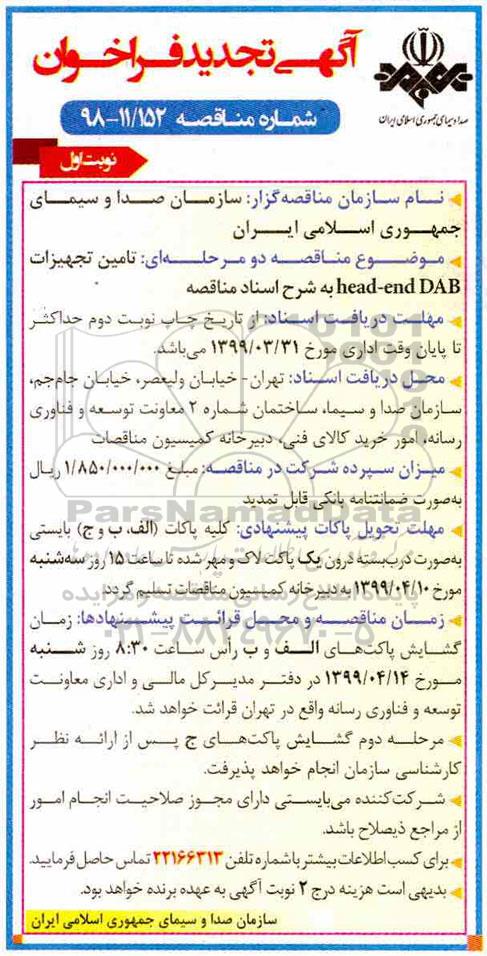 آگهی تجدید فراخوان
صدا و سیمای جمهوری اسلامی ایران
شماره مناقصه ۱۱/۱۵۲-۹۸
نوبت اول
نام سازمان مناقصه‌گزار: سازمان صدا و سیمای
جمهوری اسلامی ایران
موضوع مناقصه دو مرحله‌ای: تامین تجهیزات
head-end DAB به شرح اسناد مناقصه
مهلت دریافت اسناد: از تاریخ چاپ نوبت دوم حداکثر
تا پایان وقت اداری مورخ ۱۳۹۹/۰۳/۳۱ می‌باشد.
محل دریافت اسناد: تهران- خیابان ولیعصر، خیابان جام‌جم،
سازمان صدا و سیما، ساختمان شماره ۲ معاونت توسعه و فناوری
رسانه، امور خرید کالای فنی، دبیرخانه کمیسیون مناقصات
میزان سپرده شرکت در مناقصه: مبلغ ۱/۸۵۰/۰۰۰/۰۰۰ ریال
به‌صورت ضمانتنامه بانکی قابل تمدید
ParsNamadData
مهلت تحویل پاکات پیشنهادی: کلیه پاکات (الف، ب و ج) بایستی
به‌صورت درب‌بسته درون یک پاکت لاک و مهر شده تا ساعت ۱۵ روز سه‌شنبه
مورخ ۱۳۹۹/۰۴/۱۰ به دبیرخانه کمیسیون مناقصات تسلیم گردد
زمان مناقصه و محل قرائت پیشنهادها: زمان
۰۲۱-۸۸۳۴۹۶۷۰-۵
گشایش پاکت‌های الف و ب رأس ساعت ۸:۳۰ روز شنبه
مورخ ۱۳۹۹/۰۴/۱۴ در دفتر مدیرکل مالی و اداری معاونت
توسعه و فناوری رسانه واقع در تهران قرائت خواهد شد.
مرحله دوم گشایش پاکت‌های ج پس از ارائه نظر
کارشناسی سازمان انجام خواهد پذیرفت.
شرکت‌کننده می‌بایستی دارای مجوز صلاحیت انجام امور
از مراجع ذیصلاح باشد.
برای کسب اطلاعات بیشتر با شماره تلفن ۲۲۱۶۶۳۱۳ تماس حاصل فرمایید.
بدیهی است هزینه درج ۲ نوبت آگهی به عهده برنده خواهد بود.
سازمان صدا و سیمای جمهوری اسلامی ایران